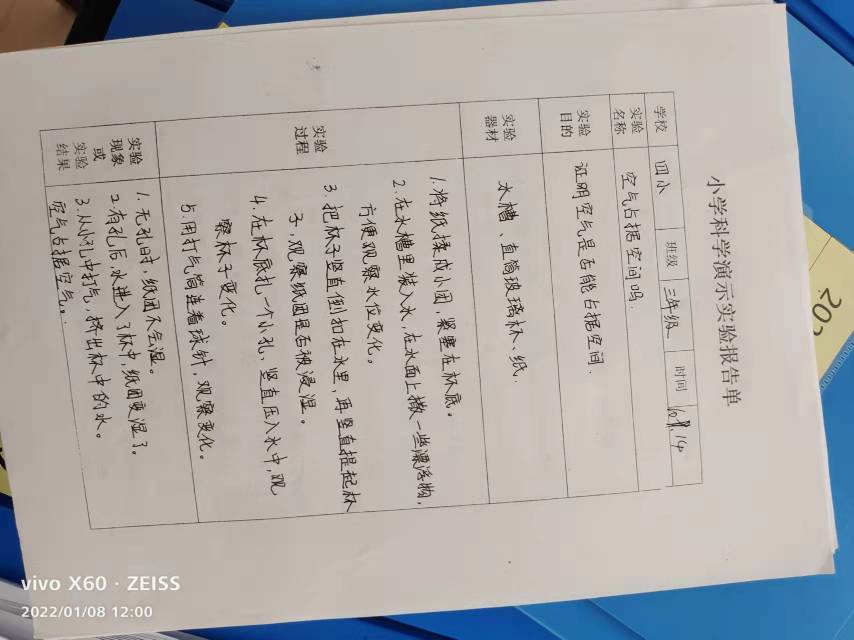 小学科学演示实验报告单
学校 四小 班级 三年级 时间
实验名称 空气占据空间吗.
实验目的 证明空气是否能占据空间.
实验器材 水槽、直筒玻璃杯、纸.
实验过程
1.将纸揉成小团,紧塞在杯底。
2.在水槽里装入水,在水面上撒一些漂浮物,
方便观察水位变化。
3.把杯子竖直倒扣在水里,再竖直提起杯
子,观察纸团是否被浸湿。
4.在杯底扎一个小孔,竖直压入水中,观
察杯子变化。
5.用打气筒连着球针,观察变化。
实验现象或实验结果
1.无孔时,纸团不会湿。
2.有孔后,水进入了杯中,纸团变湿了。
3.从小孔中打气,挤出杯中的水。
空气占据空气。
202
vivo X60 · ZEISS
2022/01/08 12:00